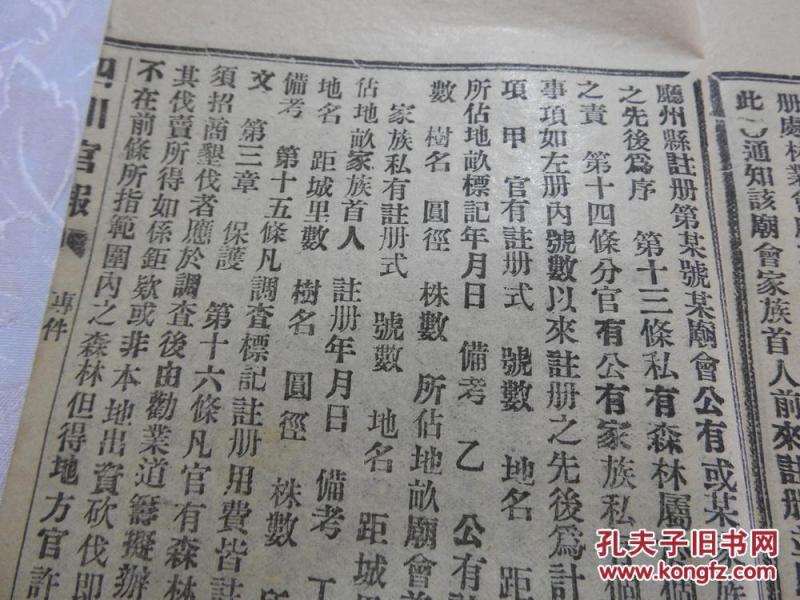 册處林業會
此︶通知該廟會家族首人前來註册
廳州縣註册第某號某廟會公有或某家族
之先後爲序　第十三條私有森林屬
之責　第十四條分官有公有家族私
事項如左册內號數以來註册之先後爲計
項　甲　官有註册式　號數　地名　距
所佔地畝標記年月日　備考　乙　公有
數　樹名　圓徑　株數　所佔地畝廟會首
家族私有註册式　號數　地名　距城里
佔地畝家族首人　註册年月日　備考　丁
地名　距城里數　樹名　圓徑　株數
備考　第十五條凡調查標記註册用費皆
文　第三章　保護　第十六條凡官有森林
須招商墾伐者應於調查後由勸業道籌擬辦
其伐賣所得如係鉅欵或非本地出資砍伐卽
不在前條所指範圍內之森林但得地方官許
四川官報　專件
孔夫子旧书网
www.kongfz.com